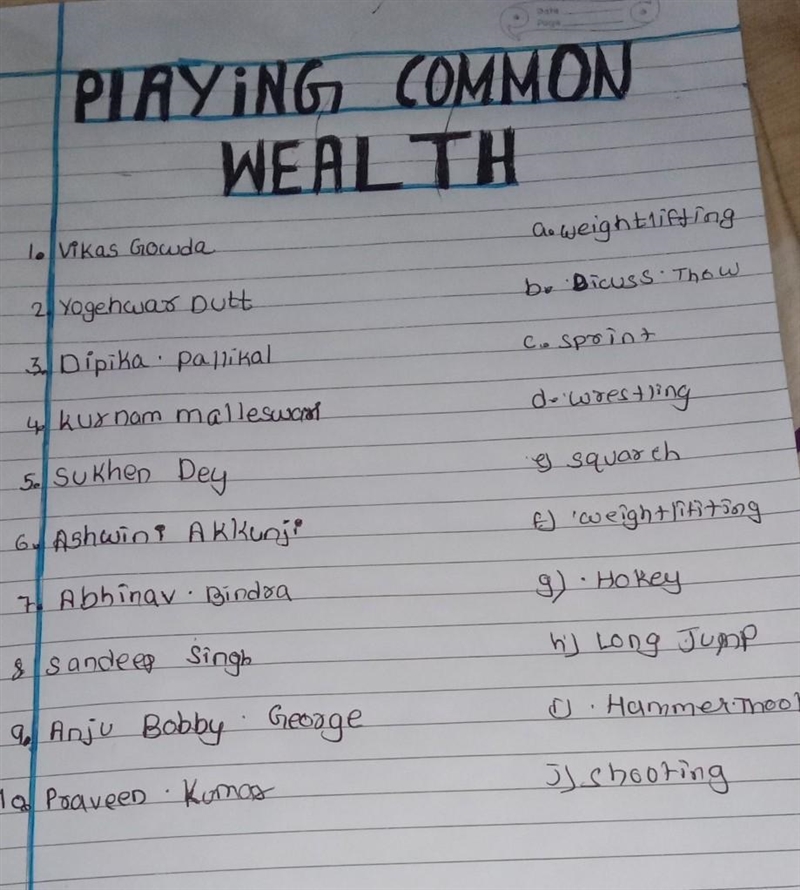 Date
Page
PlAYiNG COMMON
WEALTH
1. Vikas Gowda a. weightlifting
2. Yogehwar Dutt b. Dicuss Thow
3. Dipika. pallikal c. sprint
4. kurnam malleswari d. wrestling
5. Sukhen Dey e) squarch
6. Ashwini Akkunji f) weightlifiting
7. Abhinav. Bindra g). Hokey
8 Sandeep Singh h) Long Jump
9. Anju Bobby. George i). Hammer.Thool
10. Praveen. Kumar j) shooting